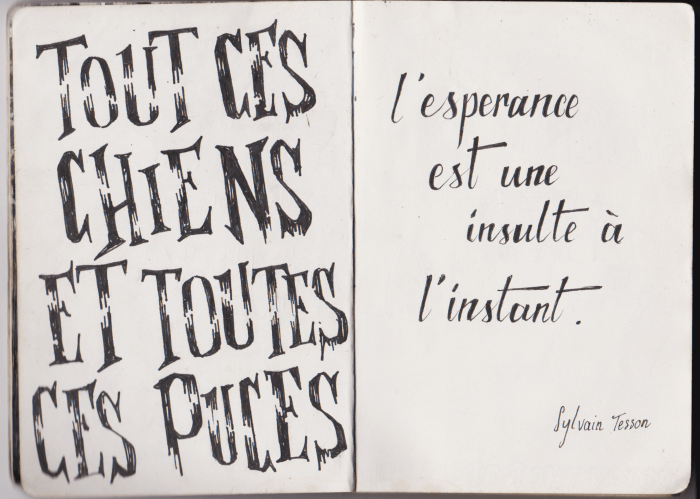 TOUT CES
CHIENS
ET TOUTES
CES PUCES
l'esperance
est une
insulte à
l'instant.
Sylvain Tesson